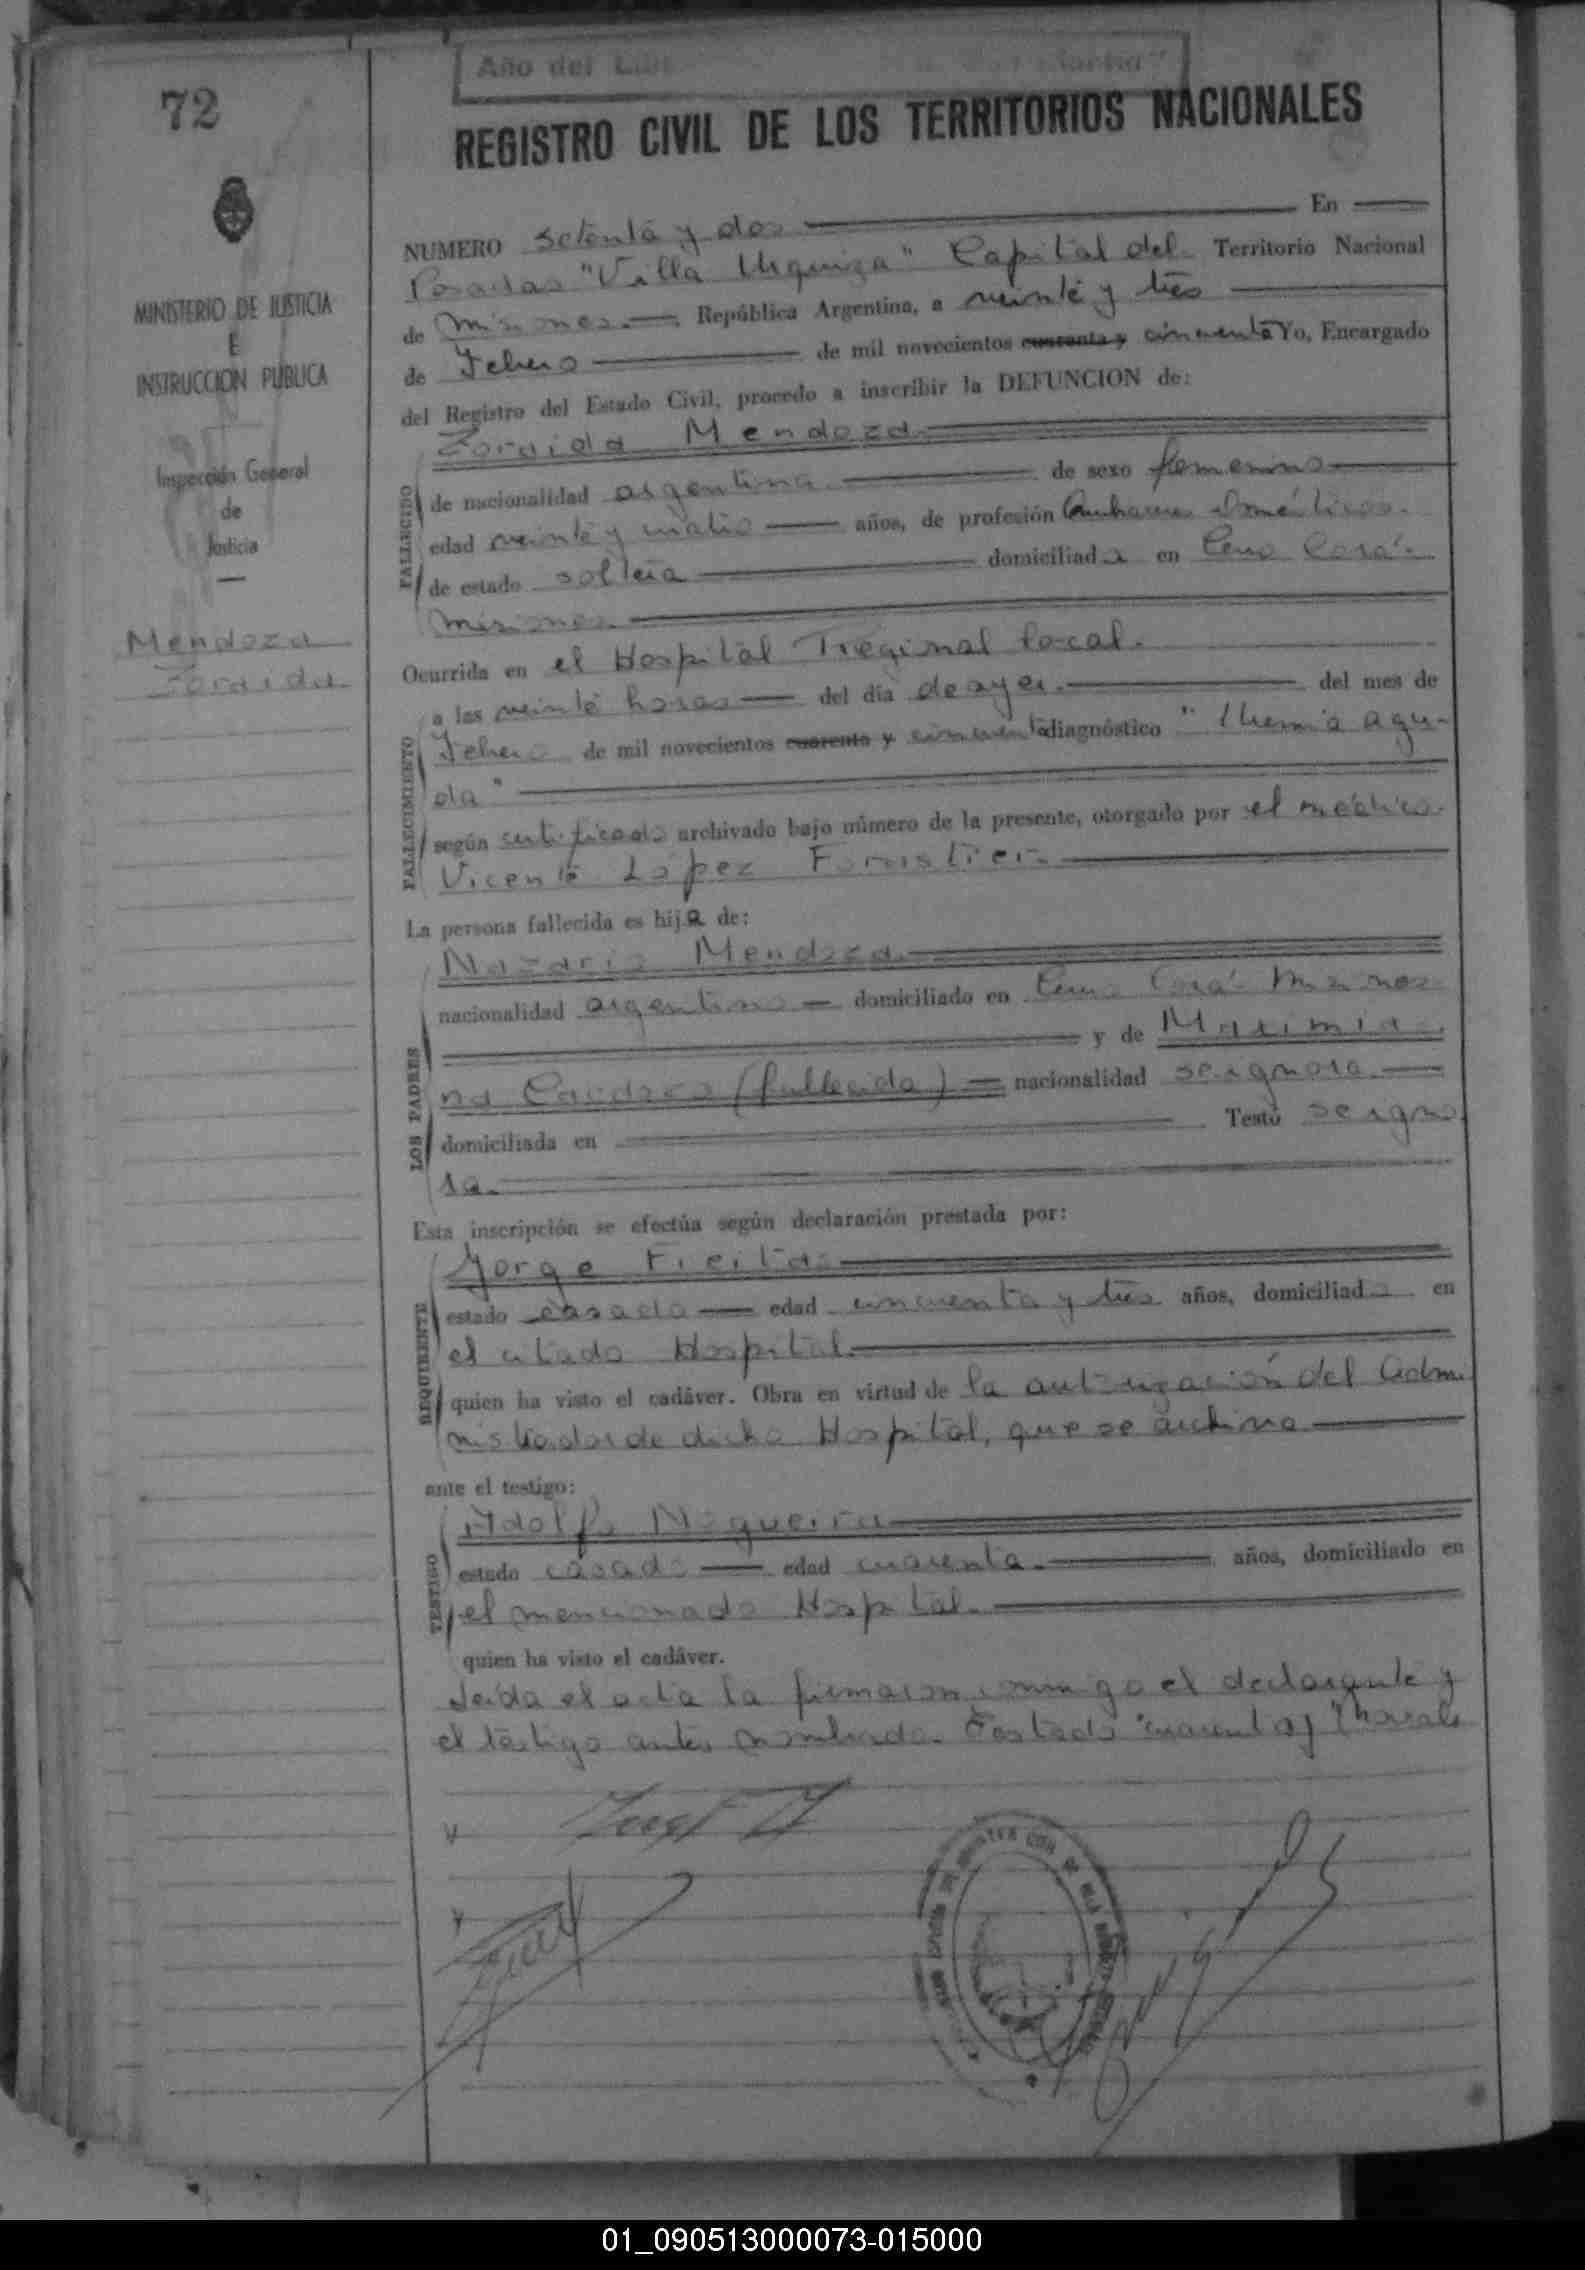 Año del
72
REGISTRO CIVIL DE LOS TERRITORIOS NACIONALES
NUMERO setenta y dos En
Posadas "Villa Urquiza" Capital del Territorio Nacional
de Misiones. República Argentina, a veinte y tres
de Febrero de mil novecientos cuarenta y cincuenta Yo, Encargado
del Registro del Estado Civil, procedo a inscribir la DEFUNCION de:
MINISTERIO DE JUSTICIA
E
INSTRUCCION PUBLICA
Inspección General
de
Justicia
Mendoza
Zoraida
FALLECIDO
Zoraida Mendoza
de nacionalidad argentina de sexo femenino
edad veinte y cuatro años, de profesión Quehaceres Domésticos.
de estado soltera domiciliada en Cerro Corá.
Misiones
Ocurrida en el Hospital Regional local.
FALLECIMIENTO
a las veinte horas del día de ayer. del mes de
Febrero de mil novecientos cuarenta y cincuenta diagnóstico "Uremia agu-
da"
según certificado archivado bajo número de la presente, otorgado por el médico
Vicente López
La persona fallecida es hija de:
LOS PADRES
Nazario Mendoza
nacionalidad argentino domiciliado en Cerro Corá Misiones
y de Maximia
na (fallecida) nacionalidad se ignora
domiciliada en Testó se igno
ra.
Esta inscripción se efectúa según declaración prestada por:
REQUIRENTE
Jorge Freitas
estado casado edad cincuenta y tres años, domiciliado en
el citado Hospital.
quien ha visto el cadáver. Obra en virtud de la autorización del Admi
nistrador de dicho Hospital, que se archiva
ante el testigo:
TESTIGO
Adolfo Nogueira
estado casado edad cuarenta. años, domiciliado en
el mencionado Hospital.
quien ha visto el cadáver.
Leída el acta la firmaron conmigo el declarante y
el testigo antes nombrado. Testado "cuarenta y"
01_090513000073-015000